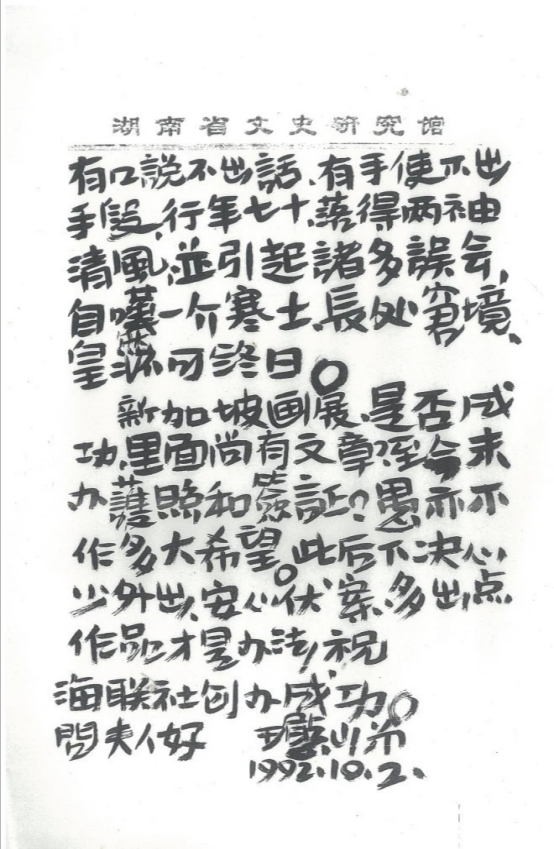 湖南省文史研究馆
有口説不出話、有手使不出
手段,行年七十,落得两袖
清風,並引起諸多誤会,
自嘆一介寒士,長处窘境、
皇 可终日。
新加坡画展,是否成
功,里面尚有文章?至今未
办護照和簽証?愚亦不
作多大希望。此后下决心
少外出,安心伏案,多出点
作品才是办法,祝
海联社创办成功。
問夫人好
1992.10.2.